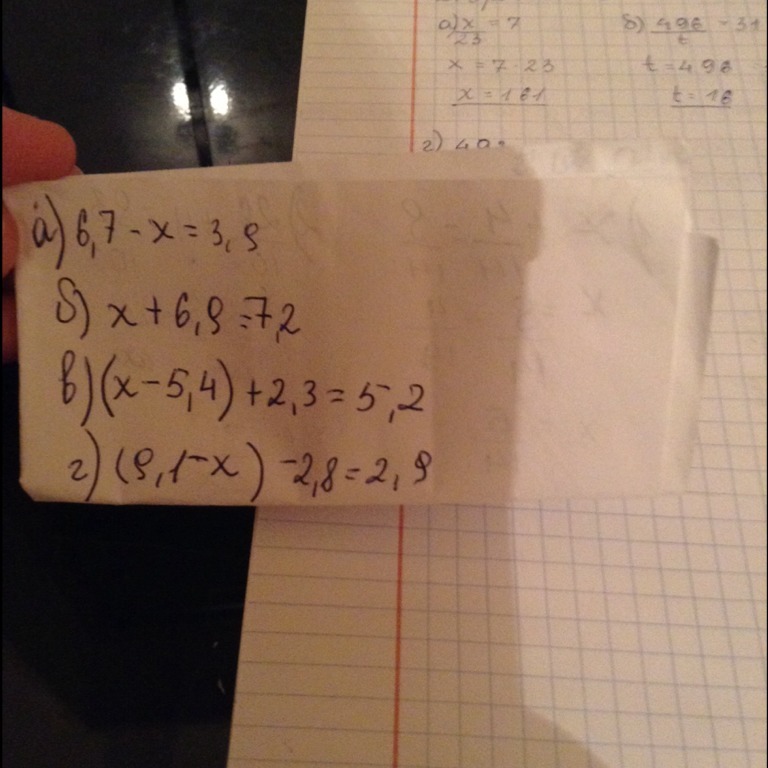 а) x/23 = 7
б) 496/t = 31
x = 7 · 23
t = 496
x = 161
t = 16
г)
а) 6,7 - x = 3,9
б) x + 6,9 = 7,2
в) (x - 5,4) + 2,3 = 5,2
г) (9,1 - x) - 2,8 = 2,9